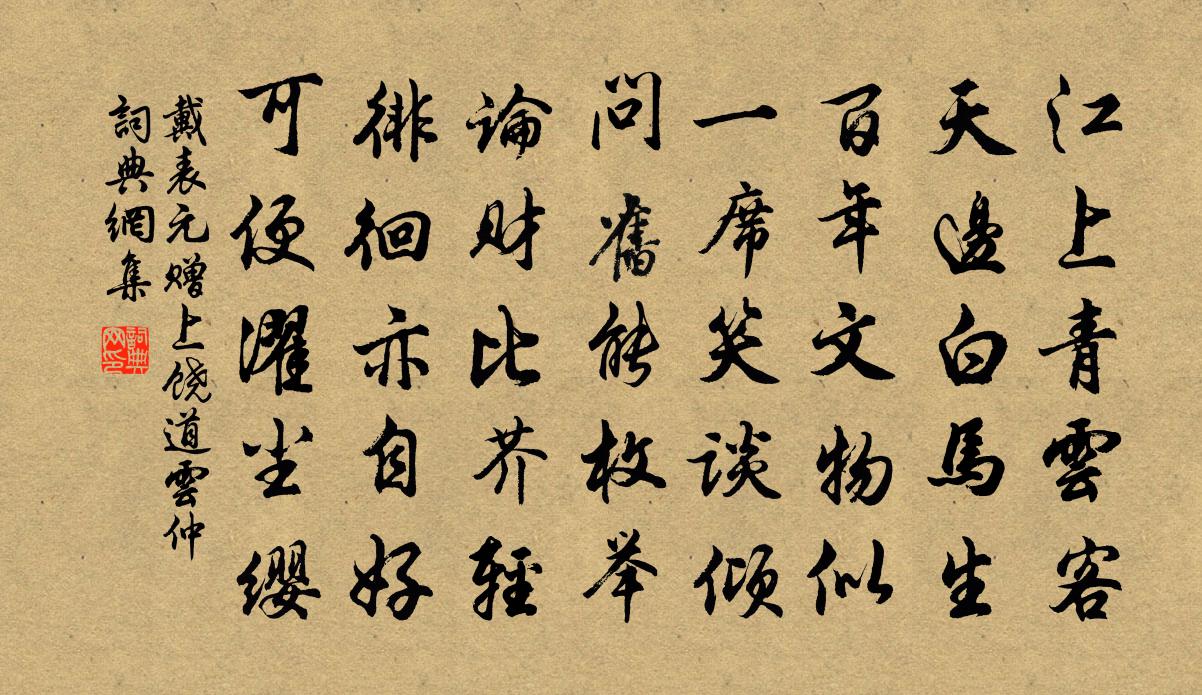 江上青雲客
天邊白馬生
百年文物似
一席笑談傾
問舊能枚举
論财比芥輕
徘徊亦自好
可便濯尘缨
戴表元赠上饶道雲仲
詞典網集
詞典网印